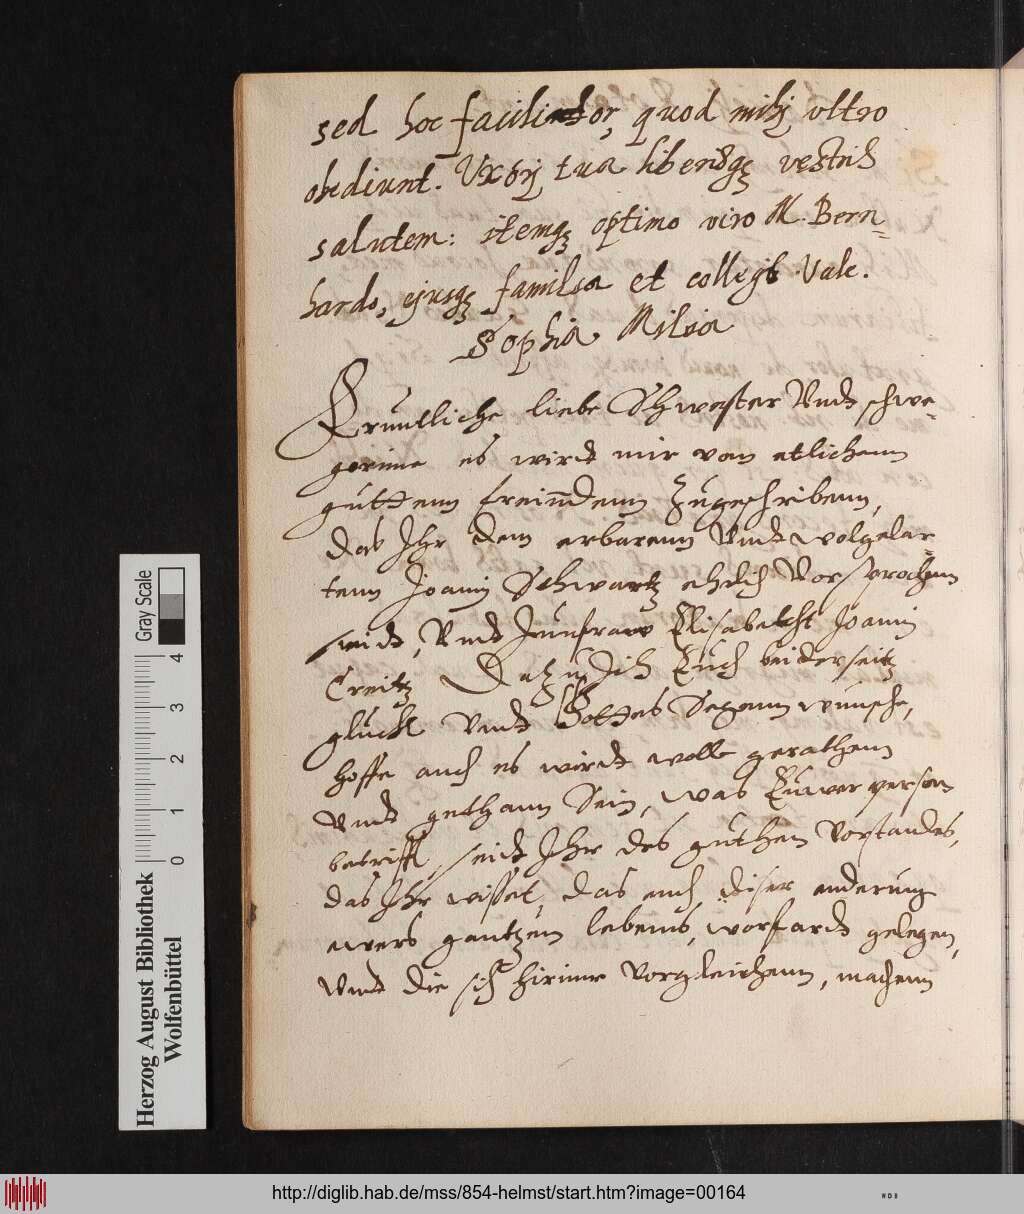 sed hoc facilius, quod mihi ultro
obediunt. Uxori tuæ liberisq; vestris
salutem: itemq; optimo viro M. Bern=
hardo, ejusq; familiæ et collegis. Vale.
Sophia Milia
Freuntliche liebe Schwester Undt schwe=
gerinne es wirdt mir von etlichenn
guttenn freundenn zugeschribenn,
das Ihr dem erbarenn Undt wolgelar=
tenn Joanni Schwartz ehrlich Vorsprochenn
seidt, Undt Junfraw Elisabetht Joanni
Creitz Datzu Ich Euch beiderseitz
gluck Undt Gottes Segenn wunsche,
hoffe auch es wirdt woll gerathenn
Undt gethann Sein, was Euwer person
betrifft, seidt Ihr des guthen Vorstandes,
das Ihr wisset, das auch diser anderung
ewers gantzen lebenns, worfardt gelegen,
Undt die sich hirinne Vorgleichenn, machenn
Herzog August Bibliothek
Wolfenbüttel
Gray Scale
0 1 2 3 4
http://diglib.hab.de/mss/854-helmst/start.htm?image=00164